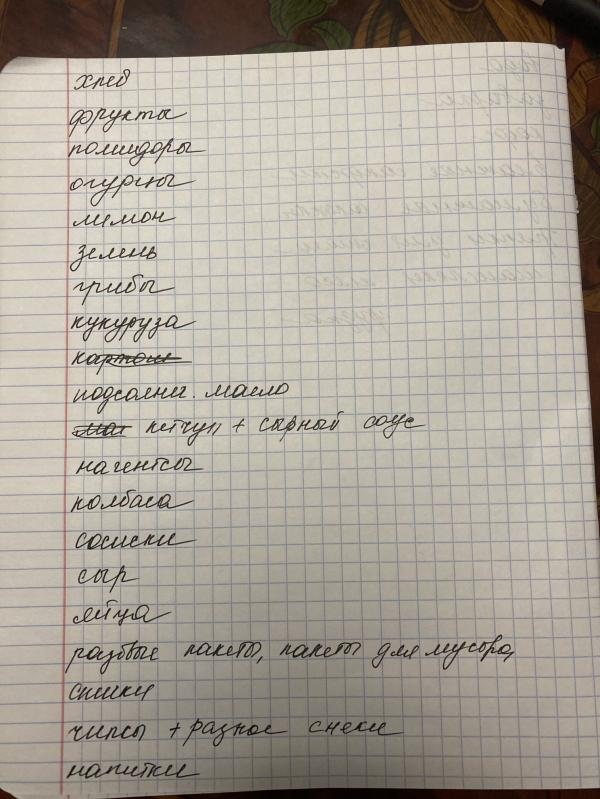 хлеб
фрукты
помидоры
огурцы
лимон
зелень
грибы
кукуруза
картош
подсолн. масло
мат кетчуп + сырный соус
нагентсы
колбаса
сосиски
сыр
яйца
разовые пакеты, пакеты для мусора,
спички
чипсы + разное снеки
напитки